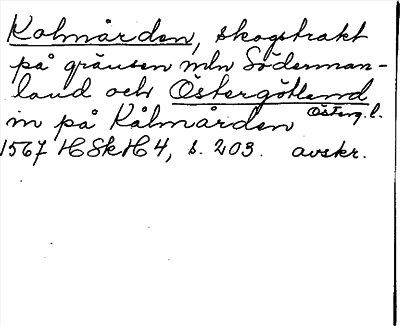 Kolmården, skogstrakt
på gränsen mln Söderman-
land och Östergötland
in på Kålmården Österg. l.
1567 HSkH 4, s. 203. avskr.